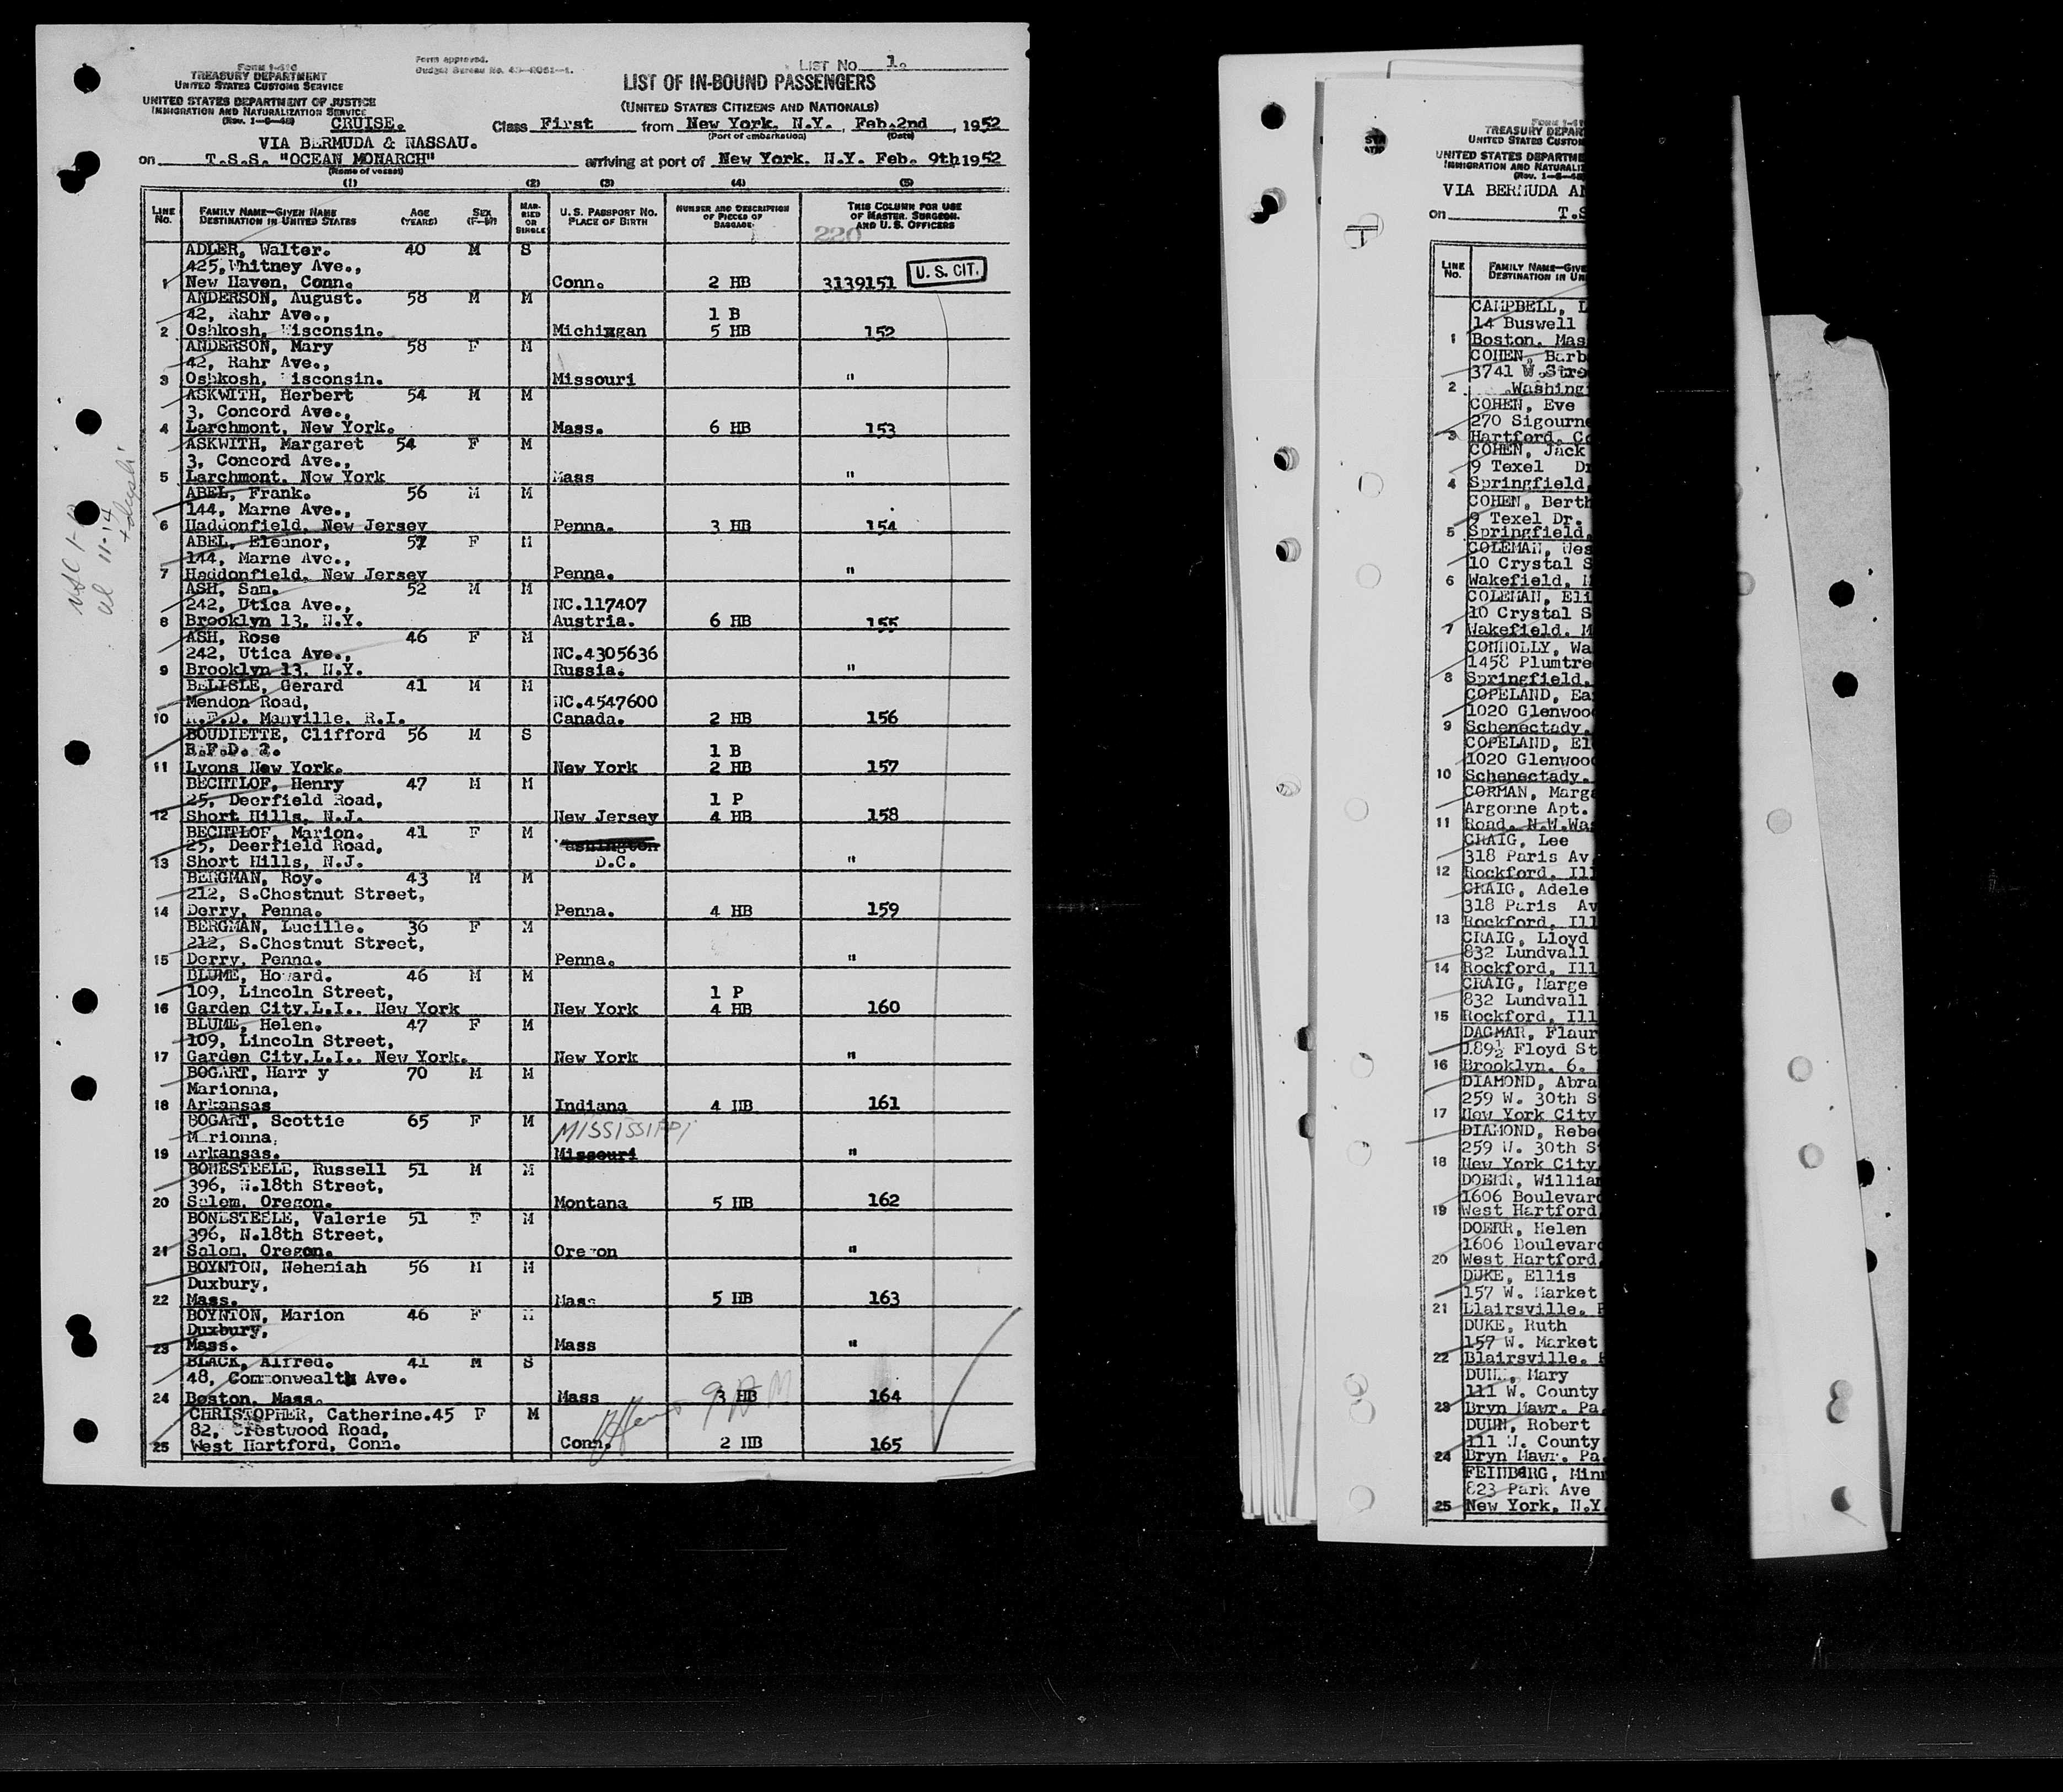 LIST No. 1.
Form I-416
TREASURY DEPARTMENT
UNITED STATES CUSTOMS SERVICE
UNITED STATES DEPARTMENT OF JUSTICE
IMMIGRATION AND NATURALIZATION SERVICE
Form approved.
LIST OF IN-BOUND PASSENGERS
(UNITED STATES CITIZENS AND NATIONALS)
CRUISE. Class First from New York, N.Y., Feb.2nd, 1952
(Port of embarkation) (Date)
VIA BERMUDA & NASSAU.
on T.S.S. "OCEAN MONARCH" arriving at port of New York. N.Y. Feb. 9th 1952
(Name of vessel)
(1) (2) (3) (4) (5)
LINE No. FAMILY NAME—GIVEN NAME DESTINATION IN UNITED STATES AGE (YEARS) SEX (F-M) MARRIED OR SINGLE U.S. PASSPORT NO. PLACE OF BIRTH NUMBER AND DESCRIPTION OF PIECES OF BAGGAGE THIS COLUMN FOR USE OF MASTER, SURGEON, AND U.S. OFFICERS
220
ADLER, Walter. 40 M S
425, Whitney Ave.,
1 New Haven, Conn. Conn. 2 HB 3139151 U. S. CIT.
ANDERSON, August. 58 M M
42, Rahr Ave., 1 B
2 Oshkosh, Wisconsin. Michixgan 5 HB 152
ANDERSON, Mary 58 F M
42, Rahr Ave.,
3 Oshkosh, isconsin. Missouri "
ASKWITH, Herbert 54 M M
3, Concord Ave.,
4 Larchmont, New York. Mass. 6 HB 153
ASKWITH, Margaret 54 F M
3, Concord Ave.,
5 Larchmont. New York Mass "
ABEL, Frank. 56 M M
144, Marne Ave.,
6 Haddonfield, New Jersey Penna. 3 HB 154
ABEL, Eleanor, F M
144, Marne Ave.,
7 Haddonfield, New Jersey Penna. "
ASH, Sam. 52 M M
242, Utica Ave., NC.117407
8 Brooklyn 13, N.Y. Austria. 6 HB 155
ASH, Rose 46 F M
242, Utica Ave., NC.4305636
9 Brooklyn 13. N.Y. Russia. "
BELISLE, Gerard 41 M M
Mendon Road, NC.4547600
10 R.F.D. Manville, R.I. Canada. 2 HB 156
BOUDIETTE, Clifford 56 M S
R.F.D. 2. 1 B
11 Lyons New York. New York 2 HB 157
BECHTLOF, Henry 47 M M
25, Deerfield Road, 1 P
12 Short Hills, N.J. New Jersey 4 HB 158
BECHTLOF, Marion. 41 F M
25, Deerfield Road, Washington
13 Short Hills, N.J. D.C. "
BERGMAN, Roy. 43 M M
212, S.Chestnut Street,
14 Derry, Penna. Penna. 4 HB 159
BERGMAN, Lucille. 36 F M
212, S.Chestnut Street,
15 Derry, Penna. Penna. "
BLUME, Howard. 46 M M
109, Lincoln Street, 1 P
16 Garden City.L.I.. New York New York 4 HB 160
BLUME, Helen. 47 F M
109, Lincoln Street,
17 Garden City.L.I.. New York. New York "
BOGART, Harr y 70 M M
Marionna,
18 Arkansas Indiana 4 HB 161
BOGART, Scottie 65 F M MISSISSIPPI
M rionna,
19 Arkansas. Missouri "
BONESTEELE, Russell 51 M M
396, N.18th Street,
20 Salem, Oregon. Montana 5 HB 162
BONESTEELE, Valerie 51 F M
396, N.18th Street,
21 Salem, Oregon. Oregon "
BOYNTON, Nehemiah 56 M M
Duxbury,
22 Mass. Mass 5 HB 163
BOYNTON, Marion 46 F M
Duxbury,
23 Mass. Mass "
BLACK, Alfred. 41 M S
48, Commonwealth Ave.
24 Boston, Mass. Mass 3 HB 164
CHRISTOPHER, Catherine. 45 F M
82, Crestwood Road,
25 West Hartford, Conn. Conn. 2 HB 165
TREASURY DEPAR
UNITED STATES CUSTOM
UNITED STATES DEPARTME
IMMIGRATION AND NATURALI
VIA BERMUDA AN
on T.S
LINE No. FAMILY NAME—GIVE
DESTINATION IN UN
CAMPBELL, L
14 Buswell
1 Boston. Mas
COHEN, Barb
3741 W.Stre
2 Washing
COHEN, Eve
270 Sigourne
3 Hartford, Co
COHEN, Jack
9 Texel Dr
4 Springfield,
COHEN, Berth
9 Texel Dr.
5 Springfield,
COLEMAN, Wes
10 Crystal S
6 Wakefield, M
COLEMAN, Eli
10 Crystal S
7 Wakefield. M
CONNOLLY, Wa
1458 Plumtre
8 Springfield,
COPELAND, Ea
1020 Glenwood
9 Schenectady,
COPELAND, El
1020 Glenwood
10 Schenectady.
CORMAN, Marga
Argonne Apt.
11 Road. N.W.Wa
CRAIG, Lee
318 Paris Av
12 Rockford, Ill
CRAIG, Adele
318 Paris Av
13 Rockford, Ill
CRAIG, Lloyd
832 Lundvall
14 Rockford, Ill
CRAIG, Marge
832 Lundvall
15 Rockford, Ill
DAGMAR, Flaur
189½ Floyd St
16 Brooklyn. 6.
DIAMOND, Abra
259 W. 30th S
17 New York City
DIAMOND, Rebe
259 W. 30th S
18 New York City
DOERR, William
1606 Boulevard
19 West Hartford
DOERR, Helen
1606 Boulevard
20 West Hartford
DUKE, Ellis
157 W. Market
21 Blairsville. P
DUKE, Ruth
157 W. Market
22 Blairsville. P
DUNN, Mary
111 W. County
23 Bryn Mawr. Pa.
DUNN, Robert
111 W. County
24 Bryn Mawr. Pa.
FEINBERG, Minn
823 Park Ave
25 New York, N.Y.